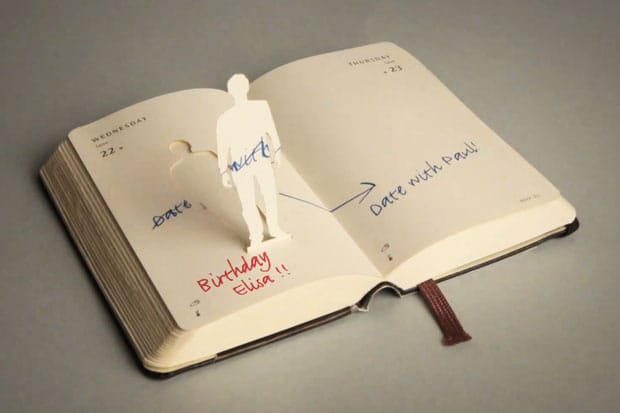 WEDNESDAY
June
22
Date with
Birthday
Elisa!!
THURSDAY
June
23
Date with Paul!